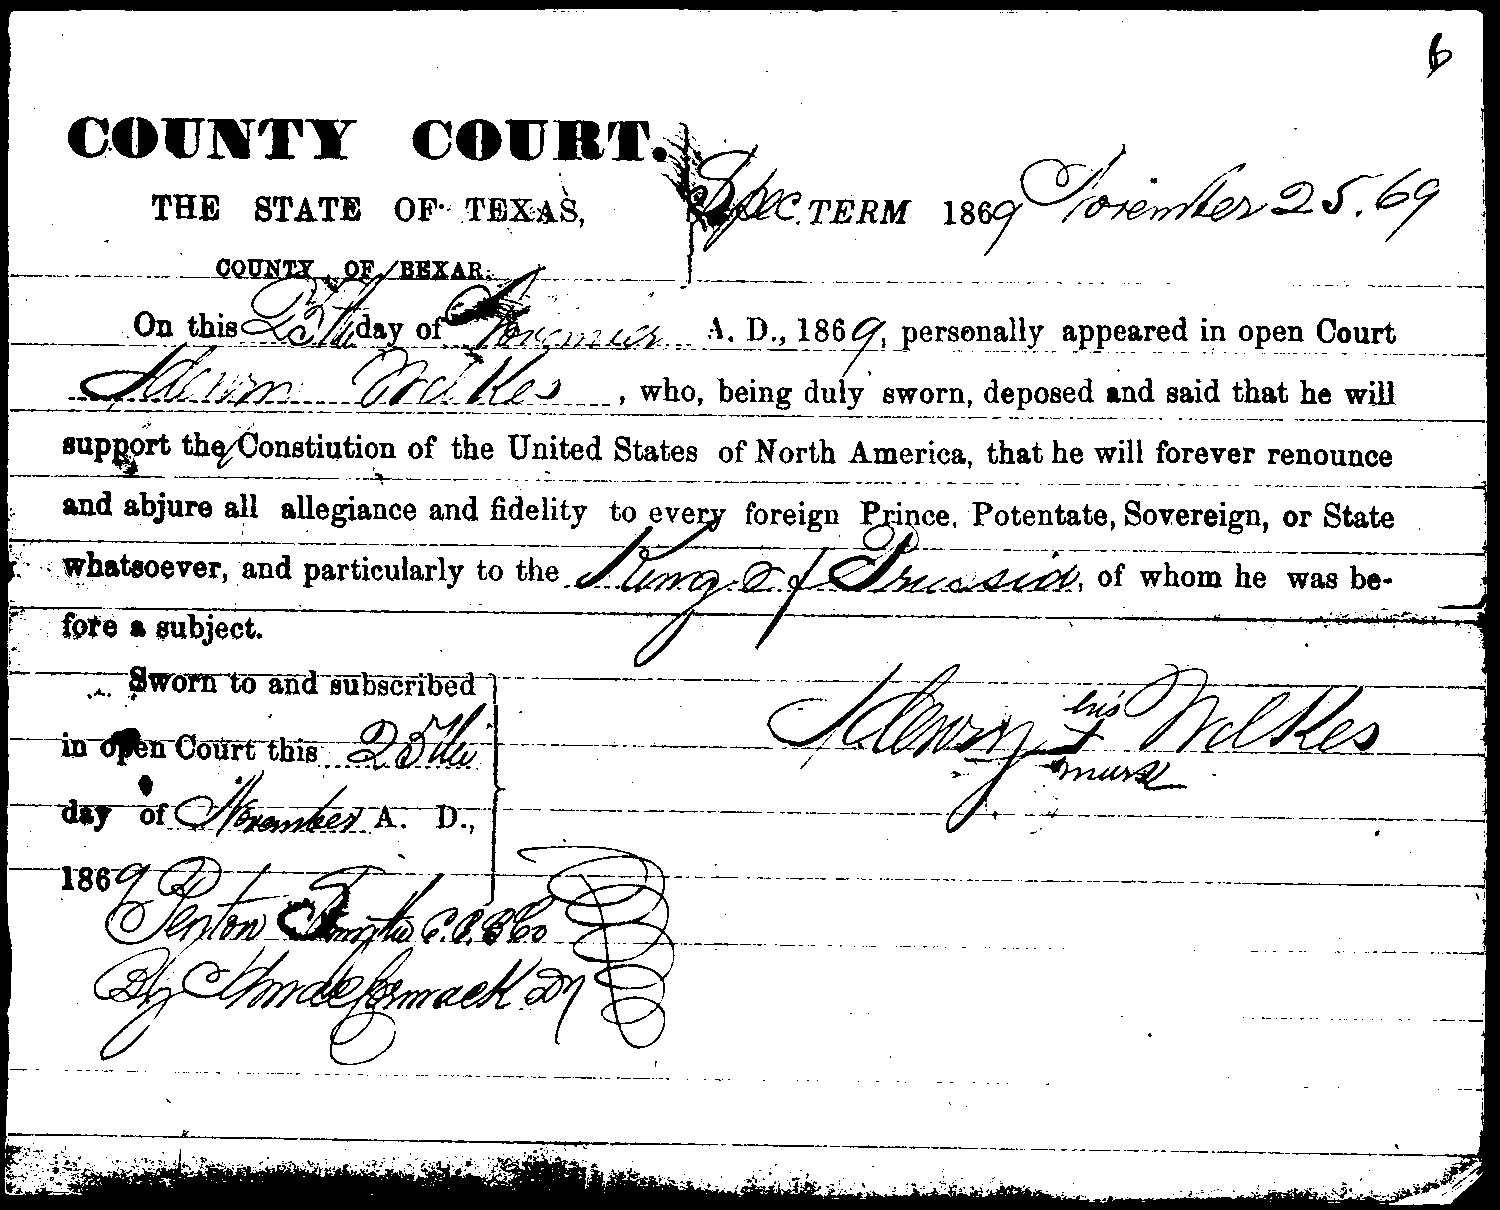 6
COUNTY COURT.
THE STATE OF TEXAS,
Spec. TERM 1869 November 25. 69
COUNTY OF BEXAR.
On this 25th day of November A. D., 1869, personally appeared in open Court
Adam Wilkes, who, being duly sworn, deposed and said that he will
support the Constiution of the United States of North America, that he will forever renounce
and abjure all allegiance and fidelity to every foreign Prince, Potentate, Sovereign, or State
whatsoever, and particularly to the King of Prussia, of whom he was be-
fore a subject.
Sworn to and subscribed
in open Court this 25th
day of November A. D.,
1869
his
Adam x Wilkes
mark
C. C. B Co
By McCormack Dy